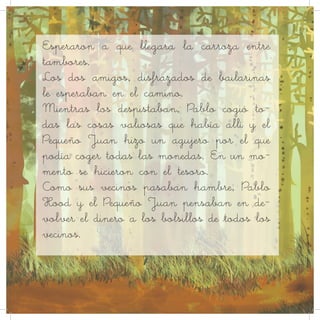 Esperaron a que llegara la carroza entre
tambores.
Los dos amigos, disfrazados de bailarinas
le esperaban en el camino.
Mientras los despistaban, Pablo cogió to-
das las cosas valiosas que había allí y el
Pequeño Juan hizo un agujero por el que
podía coger todas las monedas. En un mo-
mento se hicieron con el tesoro.
Como sus vecinos pasaban hambre, Pablo
Hood y el Pequeño Juan pensaban en de-
volver el dinero a los bolsillos de todos los
vecinos.